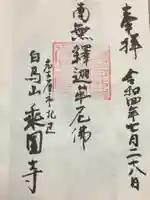 奉拜
令和四年七月二十八日
南無釋迦牟尼佛
白馬山 乘圓寺